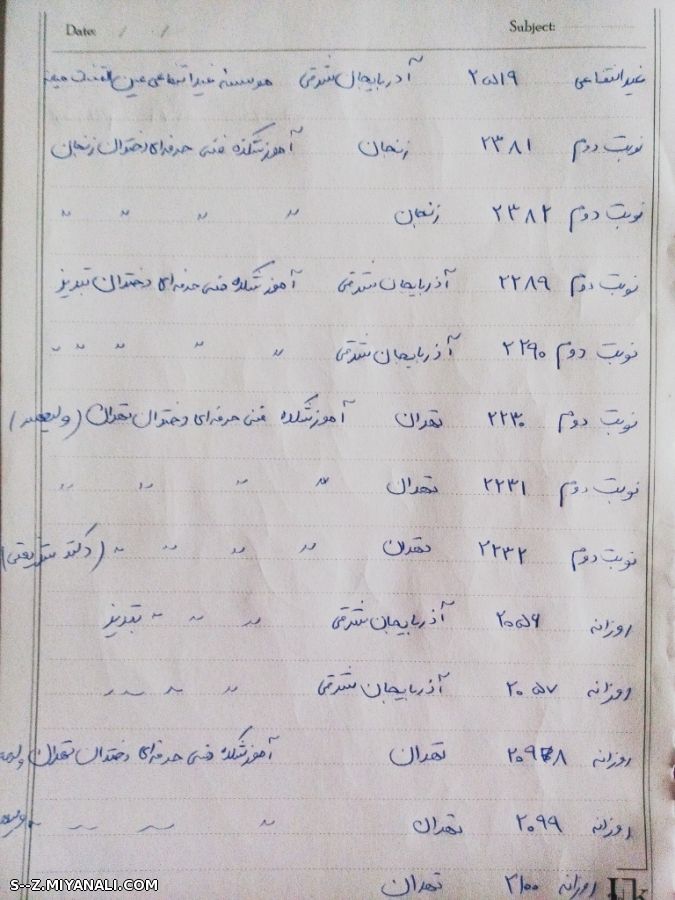 Date: / / Subject:
غیرانتفاعی ۲۵۱۹ آذربایجان شرقی موسسه غیرانتفاعی
نوبت دوم ۲۳۸۱ زنجان آموزشکده فنی حرفه‌ای دختران زنجان
نوبت دوم ۲۳۸۲ زنجان " " " "
نوبت دوم ۲۲۸۹ آذربایجان شرقی آموزشکده فنی حرفه‌ای دختران تبریز
نوبت دوم ۲۲۹۰ آذربایجان شرقی " " " " "
نوبت دوم ۲۲۳۰ تهران آموزشکده فنی حرفه‌ای دختران تهران (ولیعصر)
نوبت دوم ۲۲۳۱ تهران " " " "
نوبت دوم ۲۲۳۲ تهران " " " " (دکتر شریعتی)
روزانه ۲۰۵۶ آذربایجان شرقی " " " تبریز
روزانه ۲۰۵۷ آذربایجان شرقی " " " "
روزانه ۲۰۹۸ تهران آموزشکده فنی حرفه‌ای دختران تهران
روزانه ۲۰۹۹ تهران " " " "
روزانه ۲۱۰۰ تهران
S--Z.MIYANALI.COM